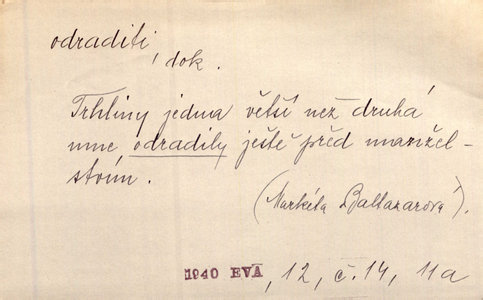 odraditi
dok.
Trhliny jedna větší než druhá
mne odradily ještě před manžel-
stvím.
(Markéta Baltazarová).
1940 EVA, 12, č. 14, 11a